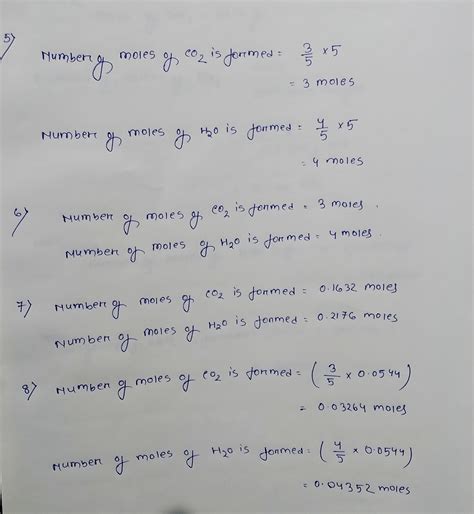 5) Number of moles of CO2 is formed = 3/5 × 5
= 3 moles
Number of moles of H2O is formed = 4/5 × 5
= 4 moles
6) Number of moles of CO2 is formed = 3 moles.
Number of moles of H2O is formed = 4 moles.
7) Number of moles of CO2 is formed = 0.1632 moles
Number of moles of H2O is formed = 0.2176 moles
8) Number of moles of CO2 is formed = (3/5 × 0.0544)
= 0.03264 moles
Number of moles of H2O is formed = (4/5 × 0.0544)
= 0.04352 moles